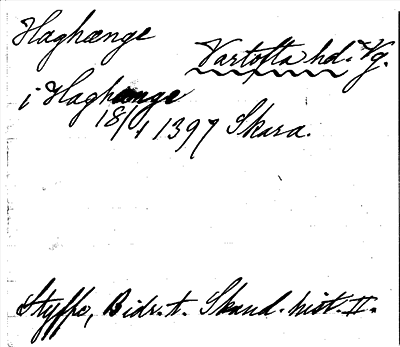 Haghænge
Vartofta hd. Vg.
i Haghænge
18/1 1397 Skara.
Styffe, Bidr. t. Skand. hist. II.